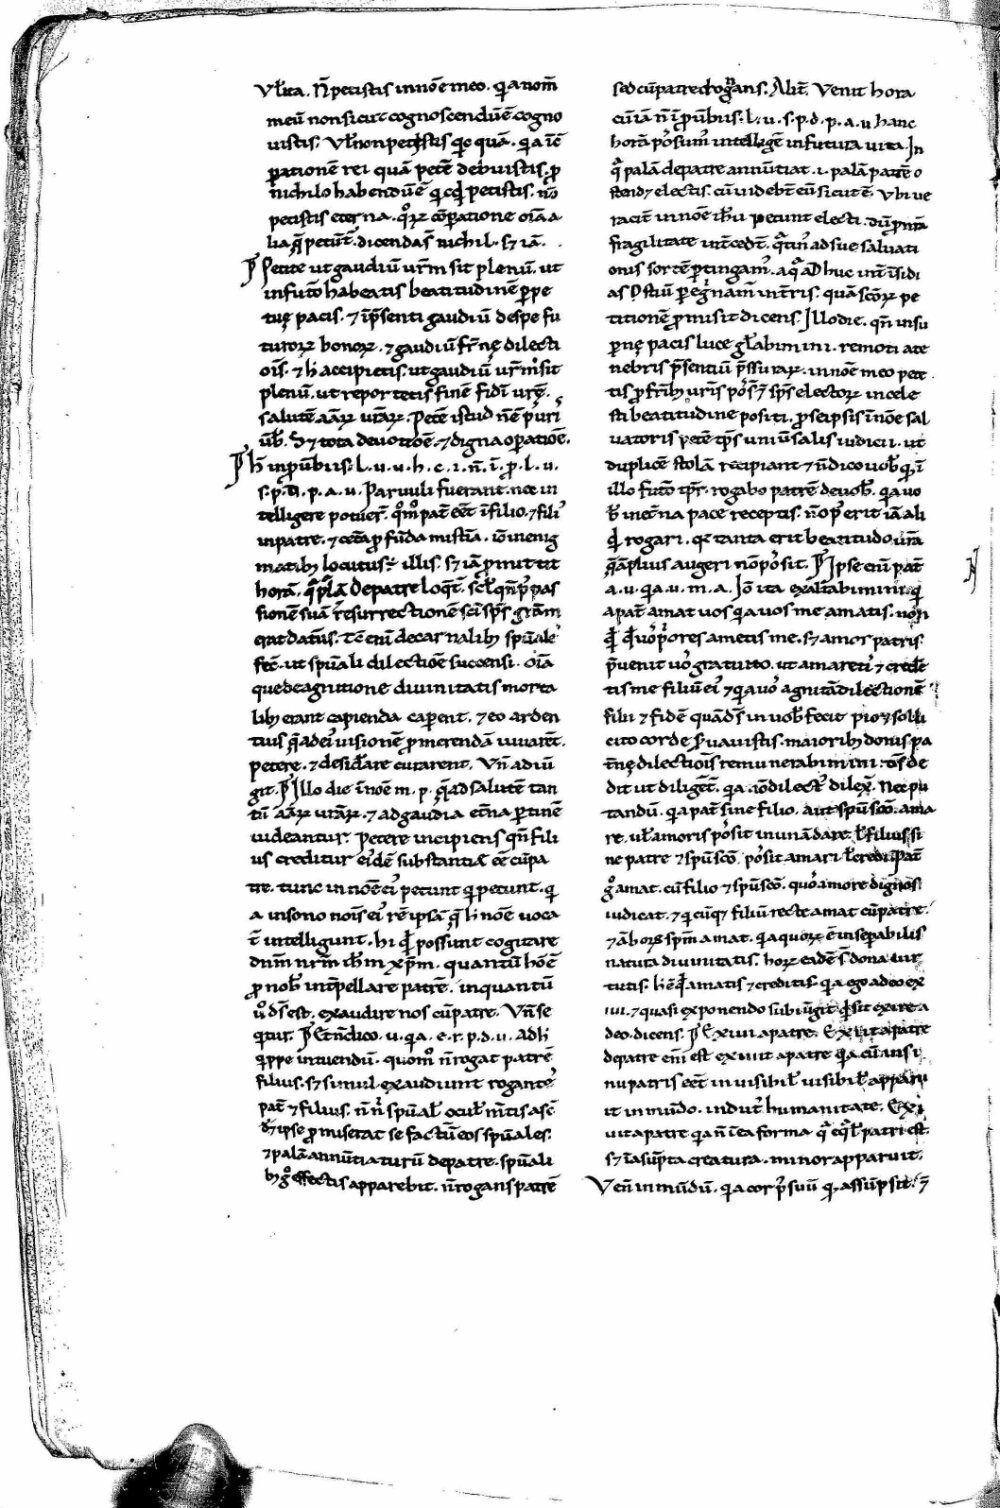 Vl̃ ita. Ñ petistis in noẽ meo. q̃a nom̃
meũ non sicut cognoscendũ ẽ cogno
uistis. Vl̃ non petistis q̃cquã. q̃a ĩ cõ
paratione rei quã petẽ debuistis. ꝓ
nichilo habendũ ẽ q̃cq̃d petistis. nõ
petistis et̃na. q̃oꝝ cõparatione oĩa a
lia q̃ petunt̃. dicenda s̃ nichil. sꝫ iã.
Petite ut gaudiũ ur̃m sit plenũ. ut
in futõ habeatis beatitudinẽ ꝑpe
tuę pacis. ⁊ ĩ p̃senti gaudiũ de spe fu
turoꝝ bonoꝝ. ⁊ gaudiũ fr̃nę dilecti
oĩs. ⁊ h̃ accipietis. ut gaudiũ ur̃m sit
plenũ. ut reportetis finẽ fidei ur̃ę.
salutẽ aĩaꝝ ur̃aꝝ. Petẽ istud nẽ puri
ũb. sꝫ tota deuotioẽ. ⁊ digna oꝑatioẽ.
H̃ in ꝓũbiis. l. u. u. h. c. i. ñ. ĩ. p. l. u.
s. p. d. p. a. u. Paruuli fuerant. nec in
telligere potuer̃. q̃om̃ pat̃ eẽt ĩ filio. ⁊ fili᾽
in patre. ⁊ cet̃a ꝓfũda mist̃ia. iõ in enig
matibꝫ locutus ẽ illis. sꝫ iã ꝓmittit
horã. q̃ palã de patre loq̃t̃. scl̃ qñ p᾽ pas
sionẽ suã ⁊ resurrectionẽ sc̃i sp̃s gr̃am
erat datur᾽. Tc̃ eni de carnalibꝫ spũale᾽
fec̃. ut spũali dilectioẽ succensi. oĩa
que de agnitione diuinitatis morta
libꝫ erant capienda caperent. ⁊ eo arden
tius q̃ ad ei᾽ uisionẽ ꝓmerendã iuuarẽt.
petere. ⁊ desid̃are curarent. Vñ adiũ
git. Illo die ĩ noẽ m. p. q̃ ad salutẽ tan
tũ aĩaꝝ ur̃aꝝ. ⁊ ad gaudia et̃na ꝑtinẽ
uideantur. Petere incipiens qñ fili
us creditur ei᾽dẽ substantiæ eẽ cũ pa
tre. tunc in noẽ ei᾽ petunt qui petunt. q̃
a in sono nois ei᾽ rẽ ipsã q̃ h̃ noẽ uoca
t̃ intelligunt. hi q̃ possunt cogitare
dñm nr̃m ih̃m xp̃m. quantũ hoẽ ẽ
ꝓ nob̃ int̃pellare patrẽ. inquantũ
u᾽ ds̃ est. exaudire nos cũ patre. Vñ se
q̃tur. Et ñ dico. u. q̃a. e. r. p. d. u. ad h̃
q̃ippe intuendũ. quom᾽ ñ rogat patrẽ
filius. sꝫ simul exaudiunt rogante᾽
pat̃ ⁊ filius. ñ nĩ spũal̃ ocul᾽ m̃tis asc̃
dꝫ. ipse ꝓmiserat se factũ eos spũales.
⁊ palã annũtiaturũ de patre. spũali
bꝫ g᾽ effectis apparebit. ñ rogans patrẽ
sed cũ patre donans. Alit̃. Venit hora
cũ iã ñ ĩ ꝓũbiis. l. u. s. p. d. p. a. u. hanc
horã põsum᾽ intelligẽ in futura uita. In
q̃ palã de patre annũtiat. i. palã patrẽ o
stendꝫ electis. cũ uidebt̃ eũ sicut ẽ. Vbi ue
racit̃ in noẽ ih̃u petunt electi. dũ ꝓ nr̃a
fragilitate int̃cedt̃. q̃tin᾽ ad sue saluati
onis sortẽ ꝑtingam᾽. a q̃ adhuc int̃ insidi
as ostiũ ꝑegᵃnam᾽ in t̃ris. quã sc̃oꝝ pe
titionẽ ꝓmisit dicens. Illo die. qñ in su
ꝑnę pacis luce gl̃abimini. remoti a te
nebris p̃sentiũ p̃ssuraꝝ. in noẽ meo pete
tis ꝓ fr̃ibꝫ ur̃is. põs̃t ⁊ sp̃s electoꝝ in cele
sti beatitudine positi. ꝓ se ipsis ĩ noẽ sal
uatoris petẽ t̃ps uniũsalis iudicii. ut
duplicẽ stolã recipiant ⁊ ñ dico uob̃ q̃ ĩ
illo futõ tp̃r. rogabo patrẽ de uob̃. q̃a uo
b̃ in et̃na pace receptis. ñ op᾽ erit iã ali
q̃d rogari. q̃ tanta erit beatitudo ur̃a
q̃ ãplius augeri nõ põsit. Ipse eni pat̃
a. u. q̃a. u. m. a. Iõ ita exaltabimini. q̃
a pat̃ amat uos q̃a uos me amatis. non
q̃ q̃ uos p᾽ores ametis me. sꝫ amor patris.
p̃uenit uos gratuito. ut amareti᾽ ⁊ crede
tis me filiũ ei᾽ ⁊ q̃a uo᾽ agnitã dilectionẽ
filii ⁊ fidẽ quã ds̃ in uob̃ fecit pio ⁊ solli
cito corde s̃uauistis. maioribꝫ donis pa
t̃nę dilectiois remunerabimini. ds̃ de
dit ut diligẽt̃. q̃a ñ dilect᾽ dilex̃. Nec pu
tandũ. q̃a pat̃ sine filio. aut spũ sc̃o. ama
re. ul̃ amoris põsit in unã dare. l̃ filius si
ne patre ⁊ spũ sc̃o. põsit amari l̃ credi. Pat̃
g᾽ amat. cũ filio ⁊ spũ sc̃o. quos amore dignos
iudicat. ⁊ q̃cũqꝫ filiũ recte amat cũ patre.
⁊ ãboꝝ sp̃m amat. q̃a quoꝝ ẽ insepabilis
natura diuinitatis. hoꝝ eadẽ s̃ dona uir
tutis. h̃ ẽ q̃ amatis ⁊ creditis. q̃a ego a deo ex
iui. ⁊ quasi exponendo subiũgit q̃d sit exire a
deo. dicens. Exiui a patre. Exiuit a patre
de patre eni est exiuit a patre q̃a cũ in si
nu patris eẽt inuisibil᾽ uisibil᾽ apparu
it in mũdo. indut᾽ humanitate. Exi
uit a patre q̃a ñ ĩ ea forma q̃ eq̃l̃ patri est.
sꝫ ĩ asũpta creatura. minor apparuit.
Veñ in mũdũ. q̃a corp᾽ suũ q̃ assũpsit. ⁊